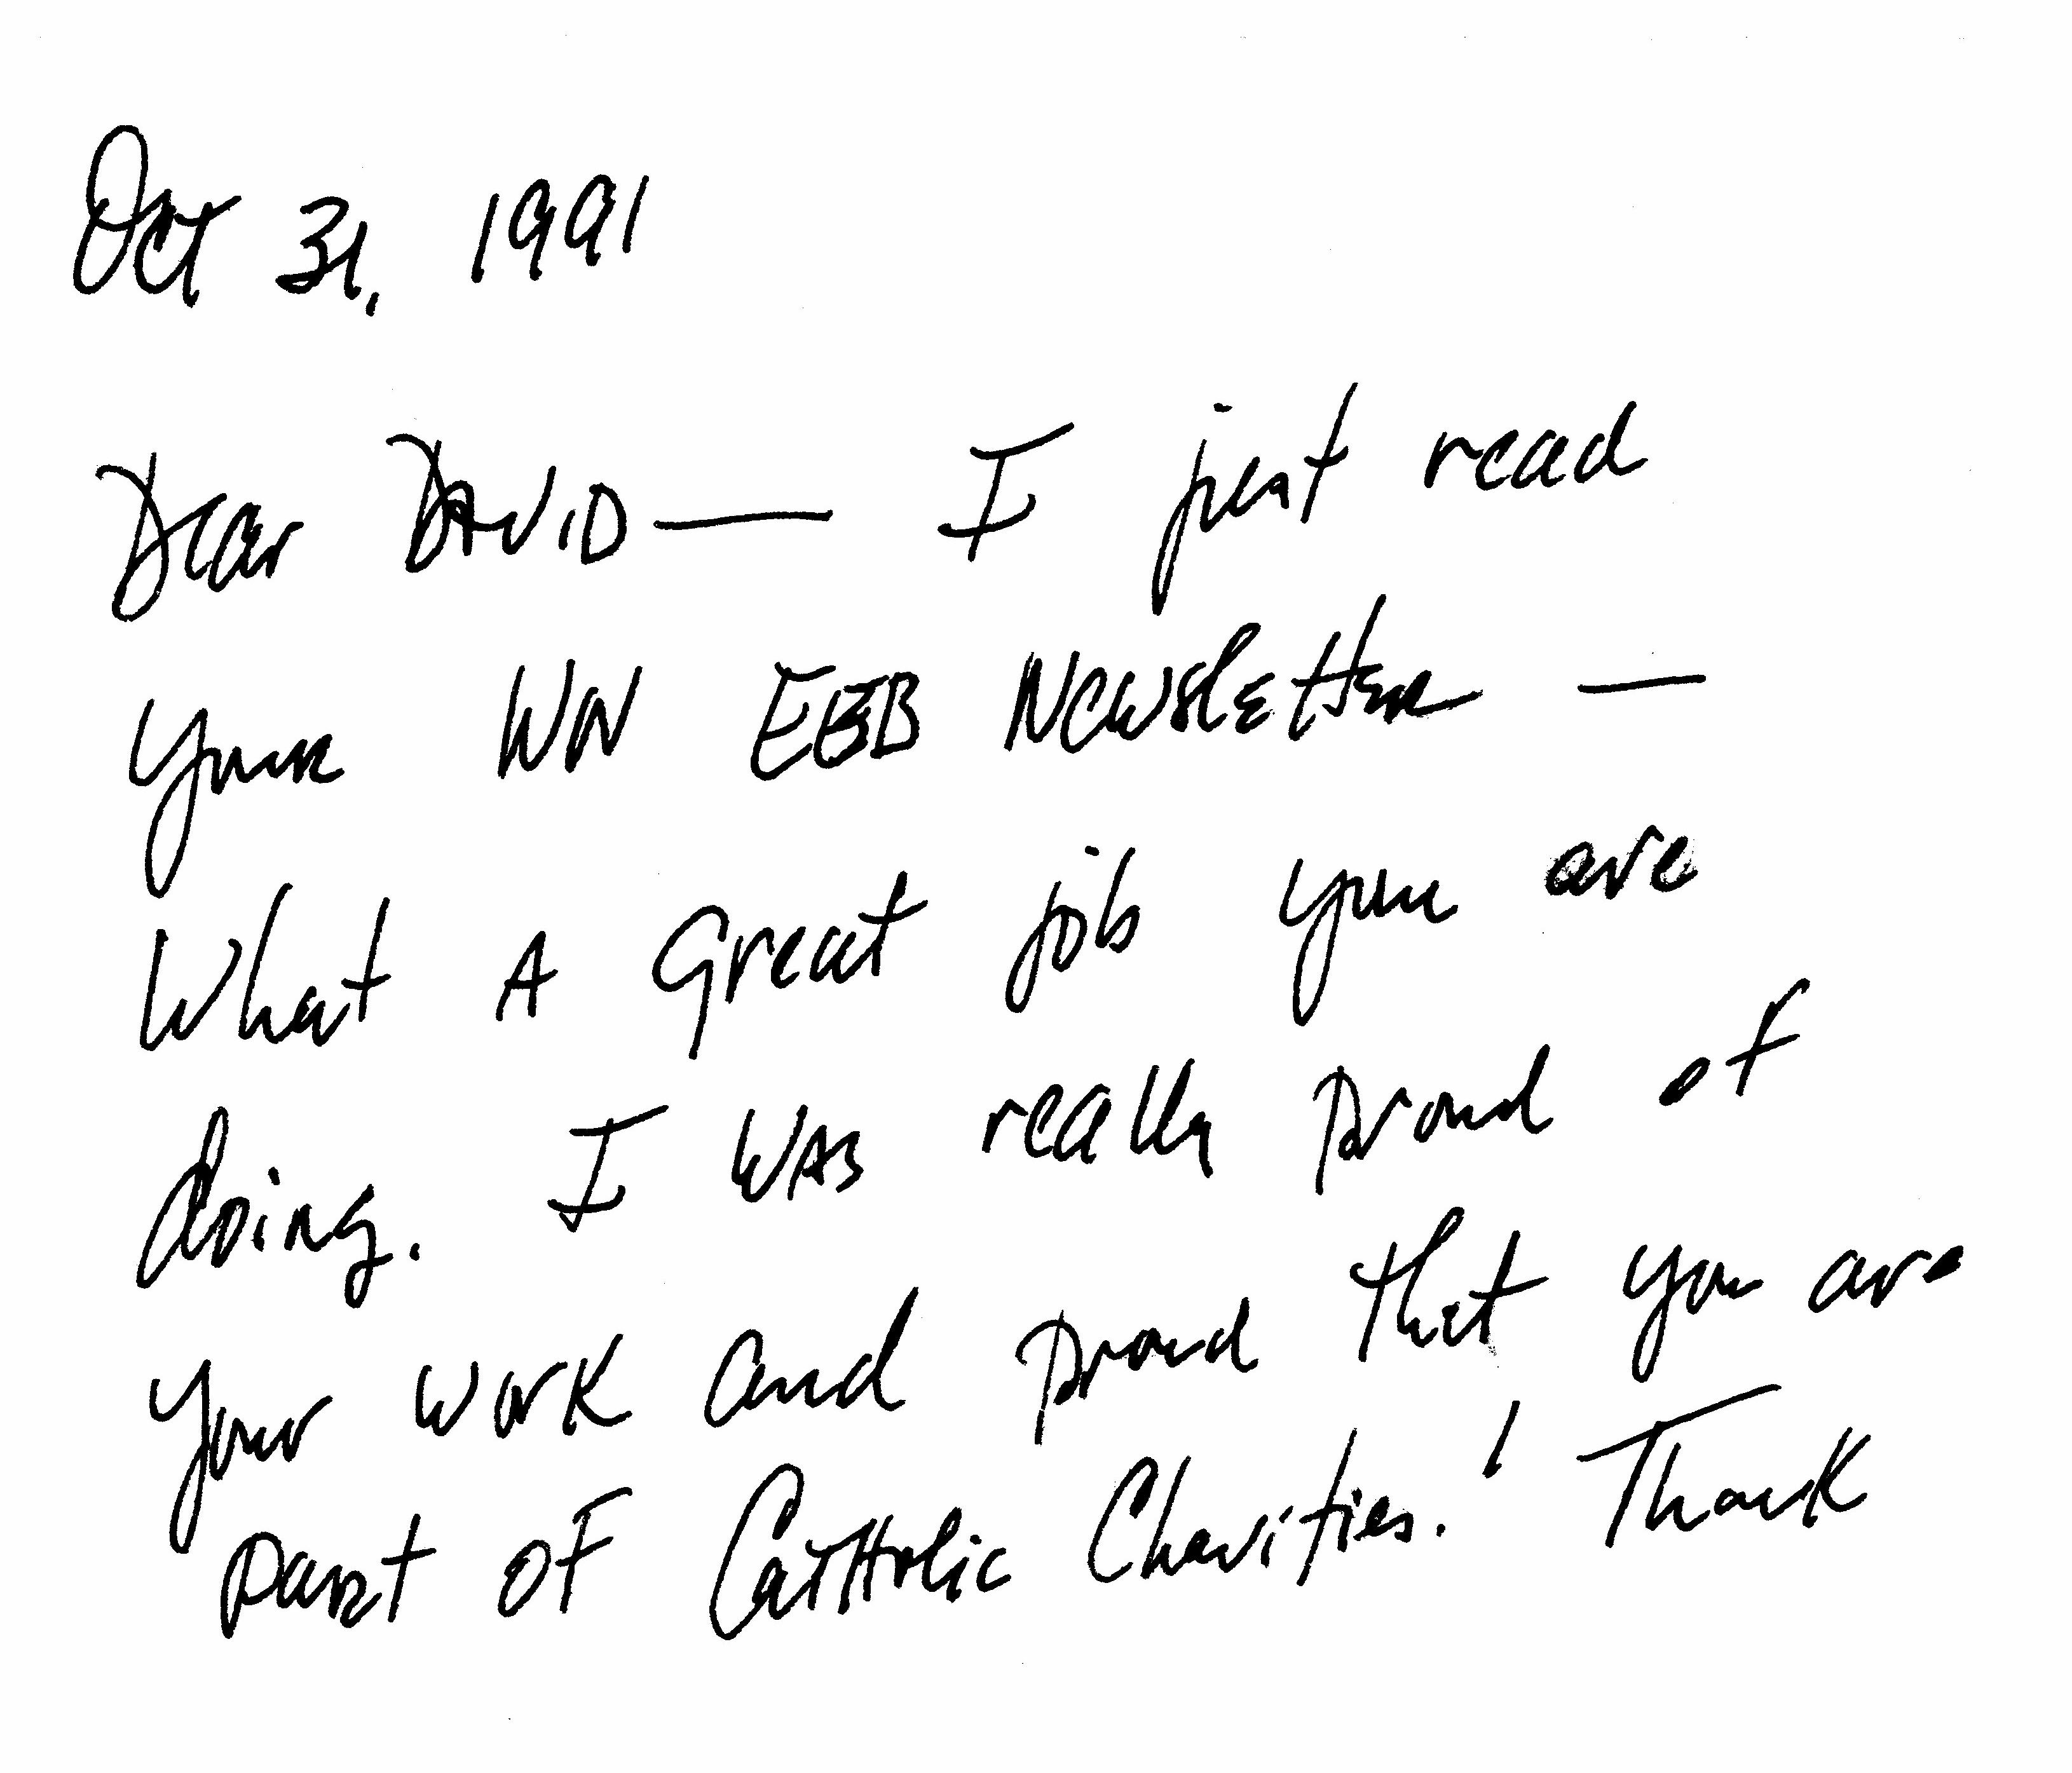 Oct 31, 1991
Dear DAVID — I just read
your WW EBB Newsletter —
What A Great job you are
doing. I was really proud of
your work and proud that you are
part of Catholic Charities! Thank